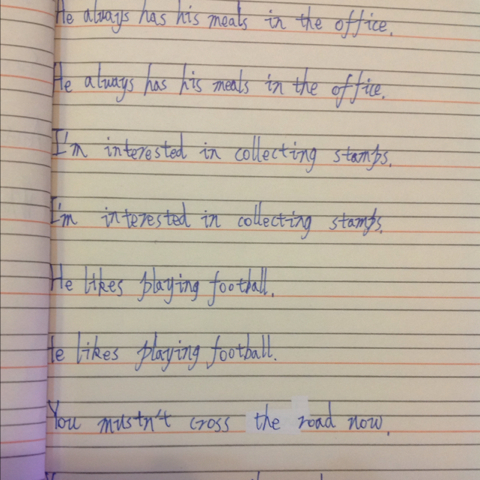 He always has his meals in the office.
He always has his meals in the office.
I'm interested in collecting stamps.
I'm interested in collecting stamps.
He likes playing football.
He likes playing football.
You mustn't cross the road now.